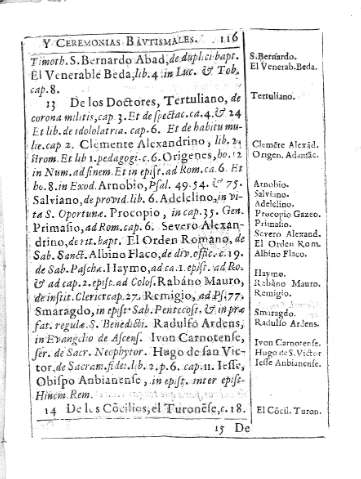 Y CEREMONIAS BAVTISMALES. 116
Timoth. S. Bernardo Abad, de duplici bapt.
El Venerable Beda, lib. 4. in Luc. & Tob.
cap. 8.
13 De los Doctores, Tertuliano, de
corona militis, cap. 3. Et de spectac. ca. 4. & 24
Et lib. de idololatria. cap. 6. Et de habitu mu-
lie. cap 2. Clemente Alexandrino, lib. 2.
strom. Et lib 1. pedagogi. c. 6. Origenes, ho. 12
in Num. ad finem. Et in epist. ad Rom. ca. 6. Et
ho. 8. in Exod. Arnobio, Psal. 49. 54. & 75.
Salviano, de provid. lib. 6. Adelelino, in vi-
ta S. Oportunæ. Procopio, in cap. 35. Gen.
Primasio, ad Rom. cap. 6. Severo Alexan-
drino, de rit. bapt. El Orden Romano, de
Sab. Sanct. Albino Flaco, de div. offic. c. 19.
de Sab. Paschæ. Haymo, ad ca. 1. epist. ad Ro.
& ad cap. 2. epist. ad Colos. Rabáno Mauro,
de instit. Cleric. cap. 27. Remigio, ad Ps. 77.
Smaragdo, in epist. Sab. Pentecost. & in præ
fat. regulæ S. Benedicti. Radulfo Ardens,
in Evangelio de Ascens. Ivon Carnotense,
ser. de Sacr. Neophytor. Hugo de san Vic-
tor, de Sacram. fidei. lib. 2. p. 6. cap. 11. Iesse,
Obispo Anbianense, in epist. inter epist.
Hincm. Rem.
14 De los Cõcilios, el Turonẽse, c. 18.
15 De
S. Bernardo.
El Venerab. Beda.
Tertuliano.
Clemẽte Alexãd.
Origen. Adamãc.
Arnobio.
Salviano.
Adelelino.
Procopio Gazeo.
Primasio.
Severo Alexand.
El Orden Rom.
Albino Flaco.
Haymo.
Rabáno Mauro.
Remigio.
Smaragdo.
Radulfo Ardens.
Ivon Carnotense.
Hugo de S. Victor
Iesse Anbianense.
El Cõcil. Turon.